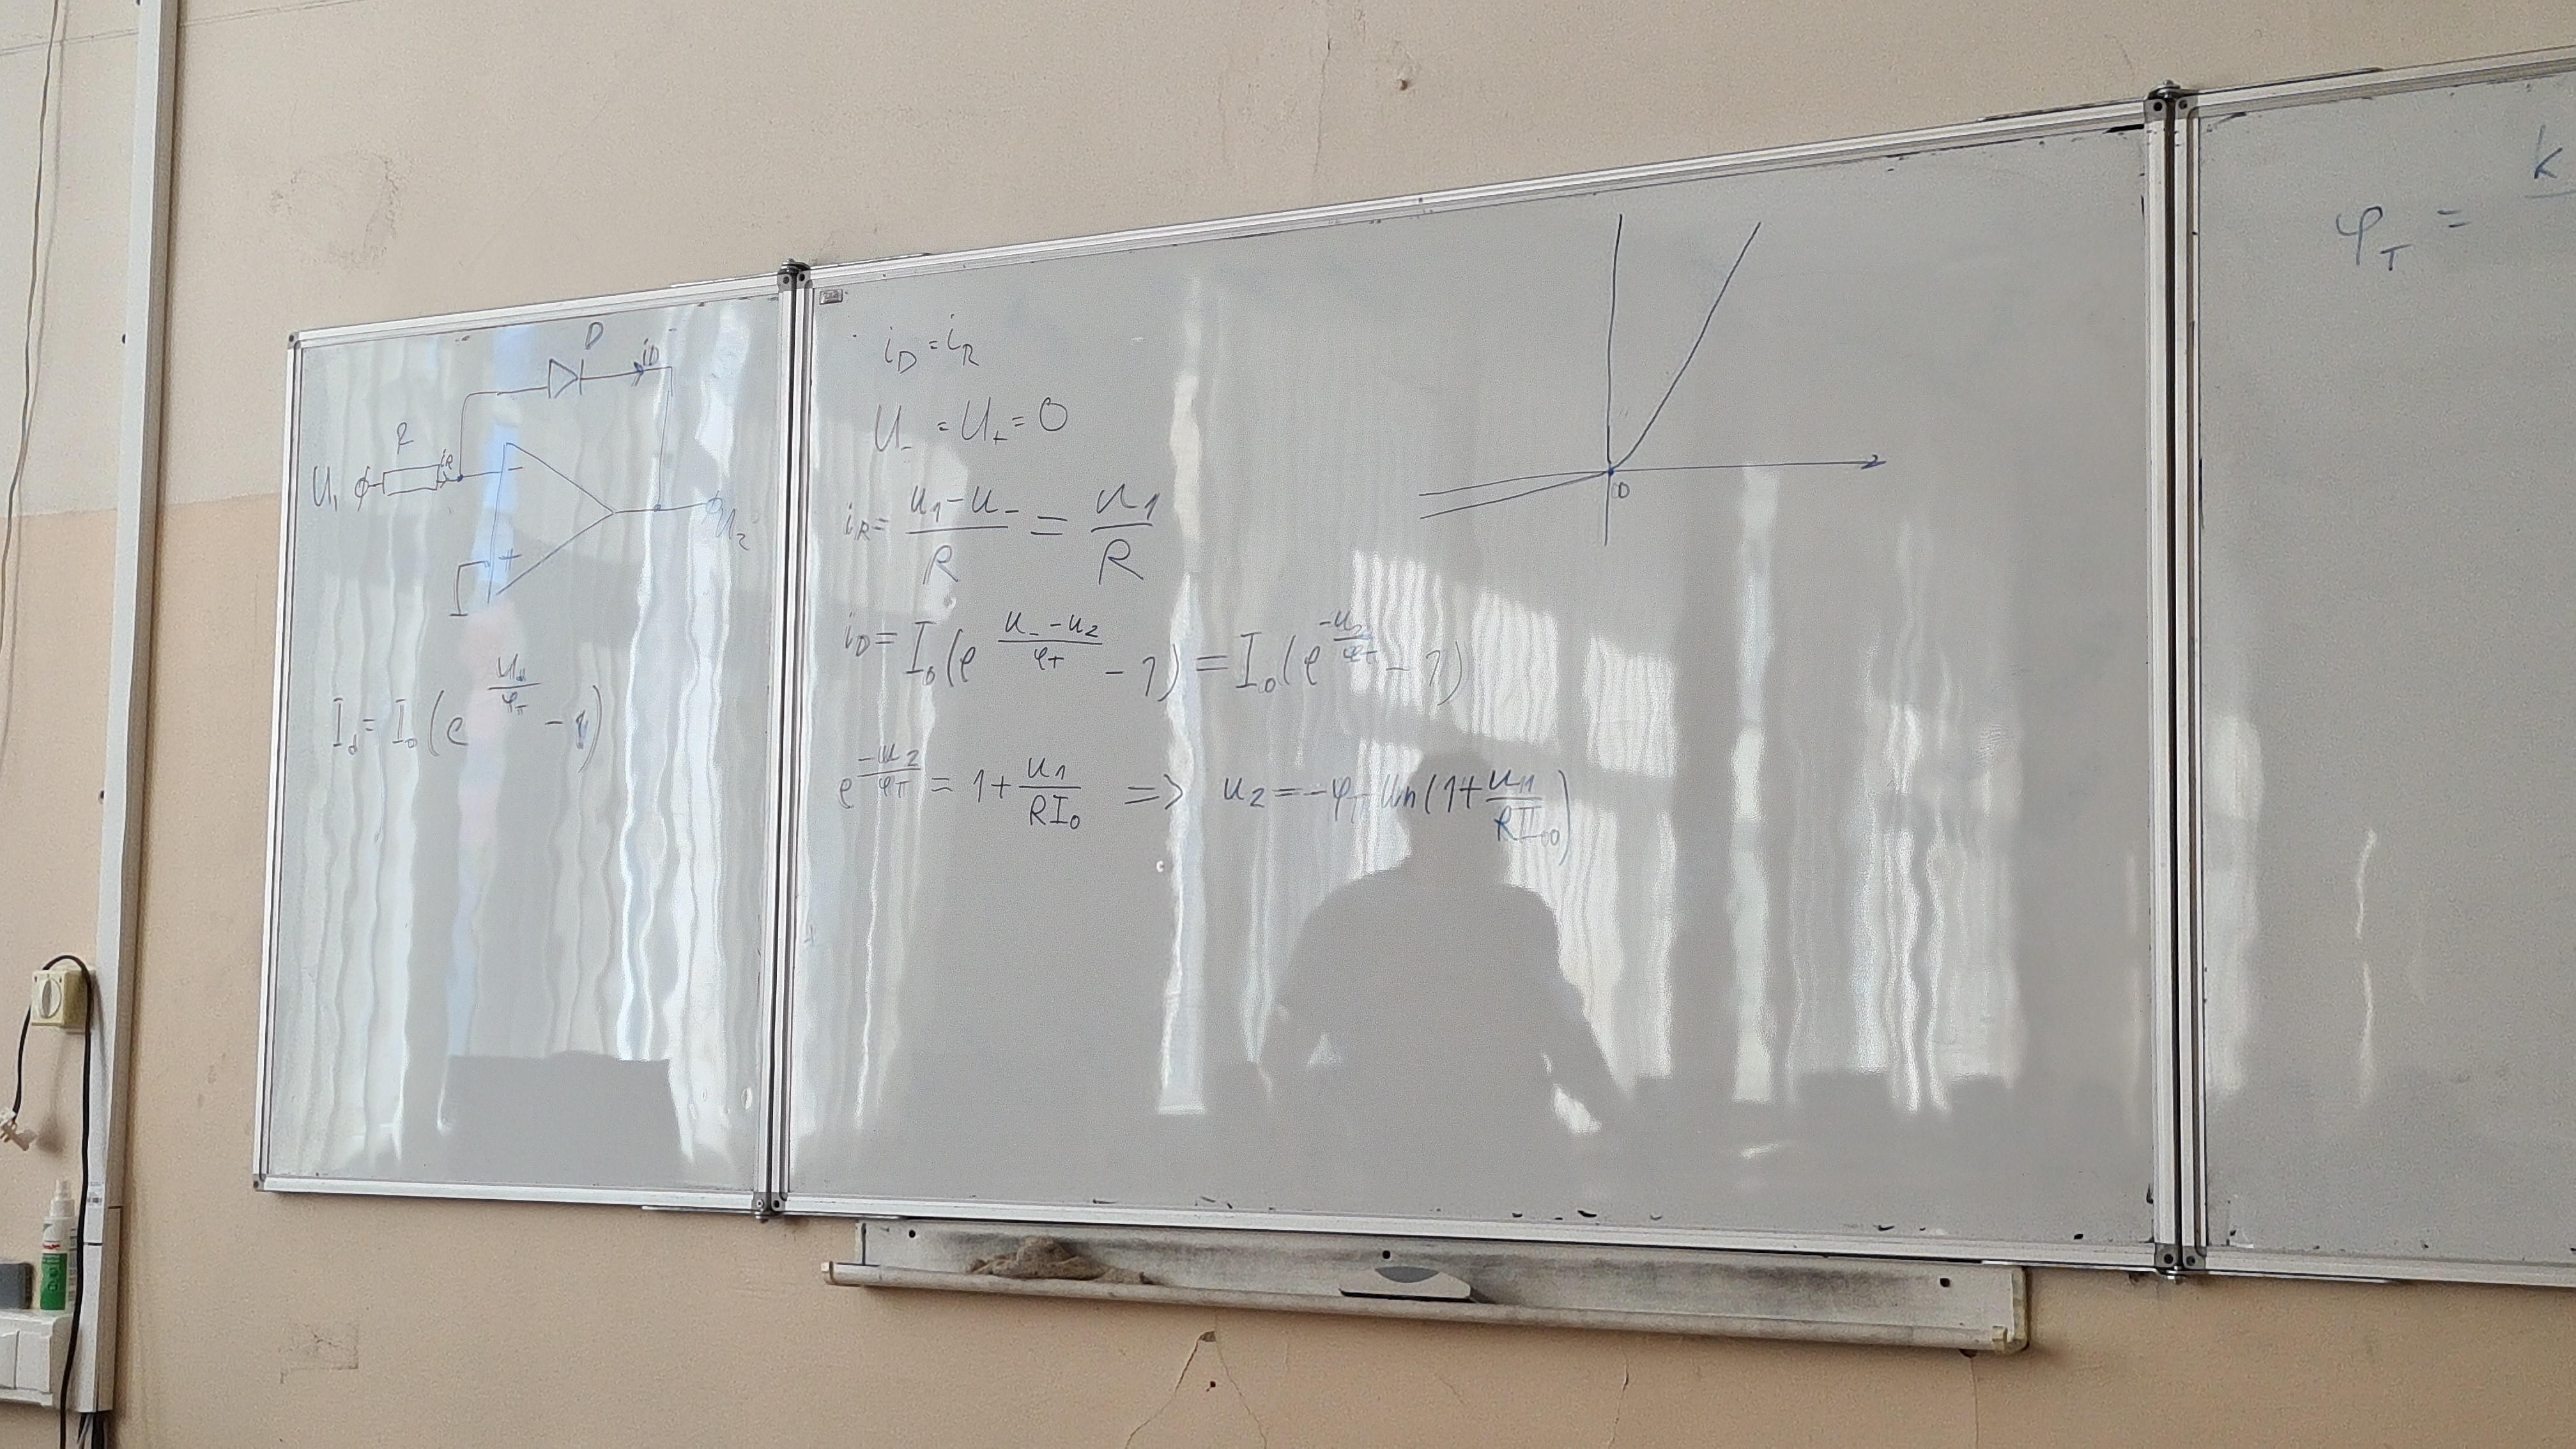 D
iD
R
iR
U₁
−
+
U₂
I_d = I₀ (e^(U_d/φ_T) − 1)
i_D = i_R
U₋ = U₊ = 0
i_R = (u₁ − u₋)/R = u₁/R
i_D = I₀ (e^((u₋ − u₂)/φ_T) − 1) = I₀ (e^(−u₂/φ_T) − 1)
e^(−u₂/φ_T) = 1 + u₁/(RI₀) => u₂ = −φ_T ln(1 + u₁/(RI₀))
0
φ_T = k